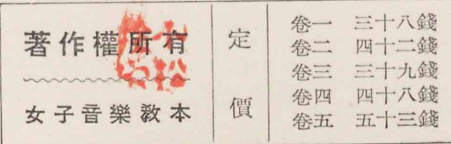 著作權所有
女子音樂教本
定價
卷一 三十八錢
卷二 四十二錢
卷三 三十九錢
卷四 四十八錢
卷五 五十三錢